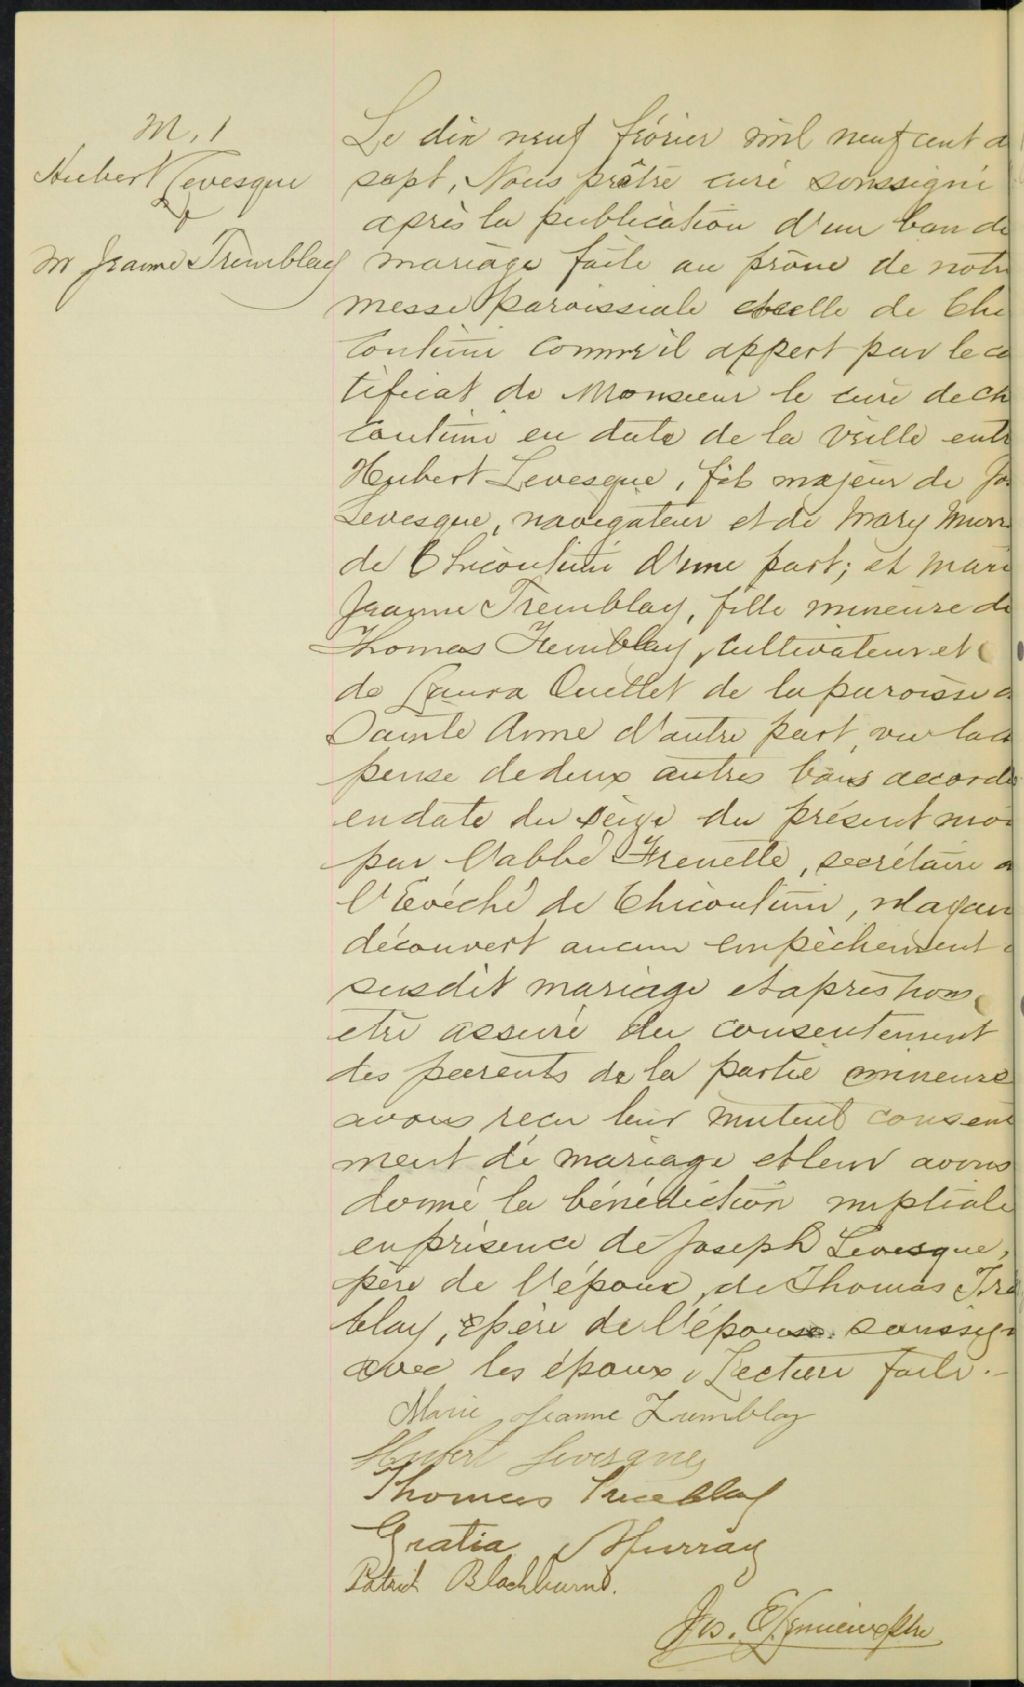 M. 1
Hubert Levesque
&
M Jeanne Tremblay
Le dix neuf février mil neuf cent d
sept, Nous prêtre curé soussigné
après la publication d'un ban de
mariage faite au prône de notre
messe paroissiale et celle de Chi
coutimi comme il appert par le ce
tificat de Monsieur le curé de Ch
coutimi en date de la veille entr
Hubert Levesque, fils majeur de Jos
Levesque, navigateur et de Mary Murr
de Chicoutimi d'une part; et Marie
Jeanne Tremblay, fille mineure de
Thomas Tremblay, cultivateur et
de Laura Ouellet de la paroisse d
Sainte Anne d'autre part, vu la d
pense de deux autres bans accordé
en date du seize du présent moi
par l'abbé Frenette, secrétaire d
l'Evêché de Chicoutimi, n'ayan
découvert aucun empêchement
susdit mariage et après nous
être assuré du consentement
des parents de la partie mineure
avons reçu leur mutuel consente
ment de mariage et leur avons
donné la bénédiction nuptiale
en présence de Joseph Levesque,
père de l'époux, de Thomas Tre
blay, père de l'épouse soussign
avec les époux, Lecture faite.-
Marie Jeanne Tremblay
Hubert Levesque
Thomas Tremblay
Gratia Murray
Patrick Blackburn.
Jos. E. Ptre